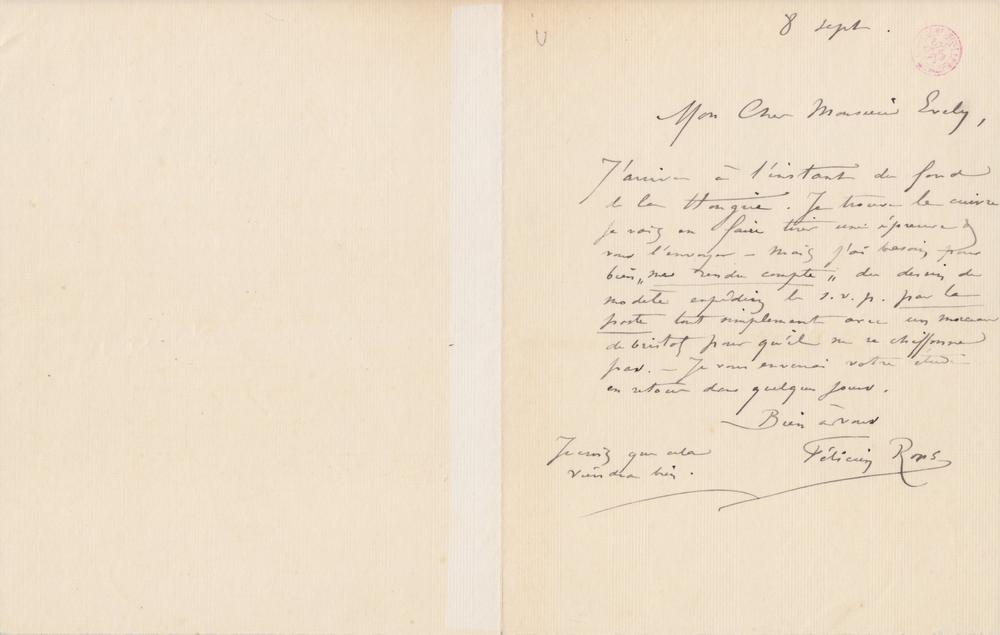 8 sept.
Mon Cher Monsieur Evely,
J'arrive à l'instant du fond
de la Hongrie. Je trouve le cuivre
je vais en faire tirer une épreuve &
vous l'envoyer – mais j'ai besoin pour
bien „me rendre compte" du dessin du
modèle expédiez le s.v.p. par la
poste tout simplement avec un morceau
de bristol pour qu'il ne se chiffonne
pas. – Je vous enverrai votre étude
en retour dans quelques jours.
Bien à vous
Félicien Rops
Je crois que cela
viendra bien.